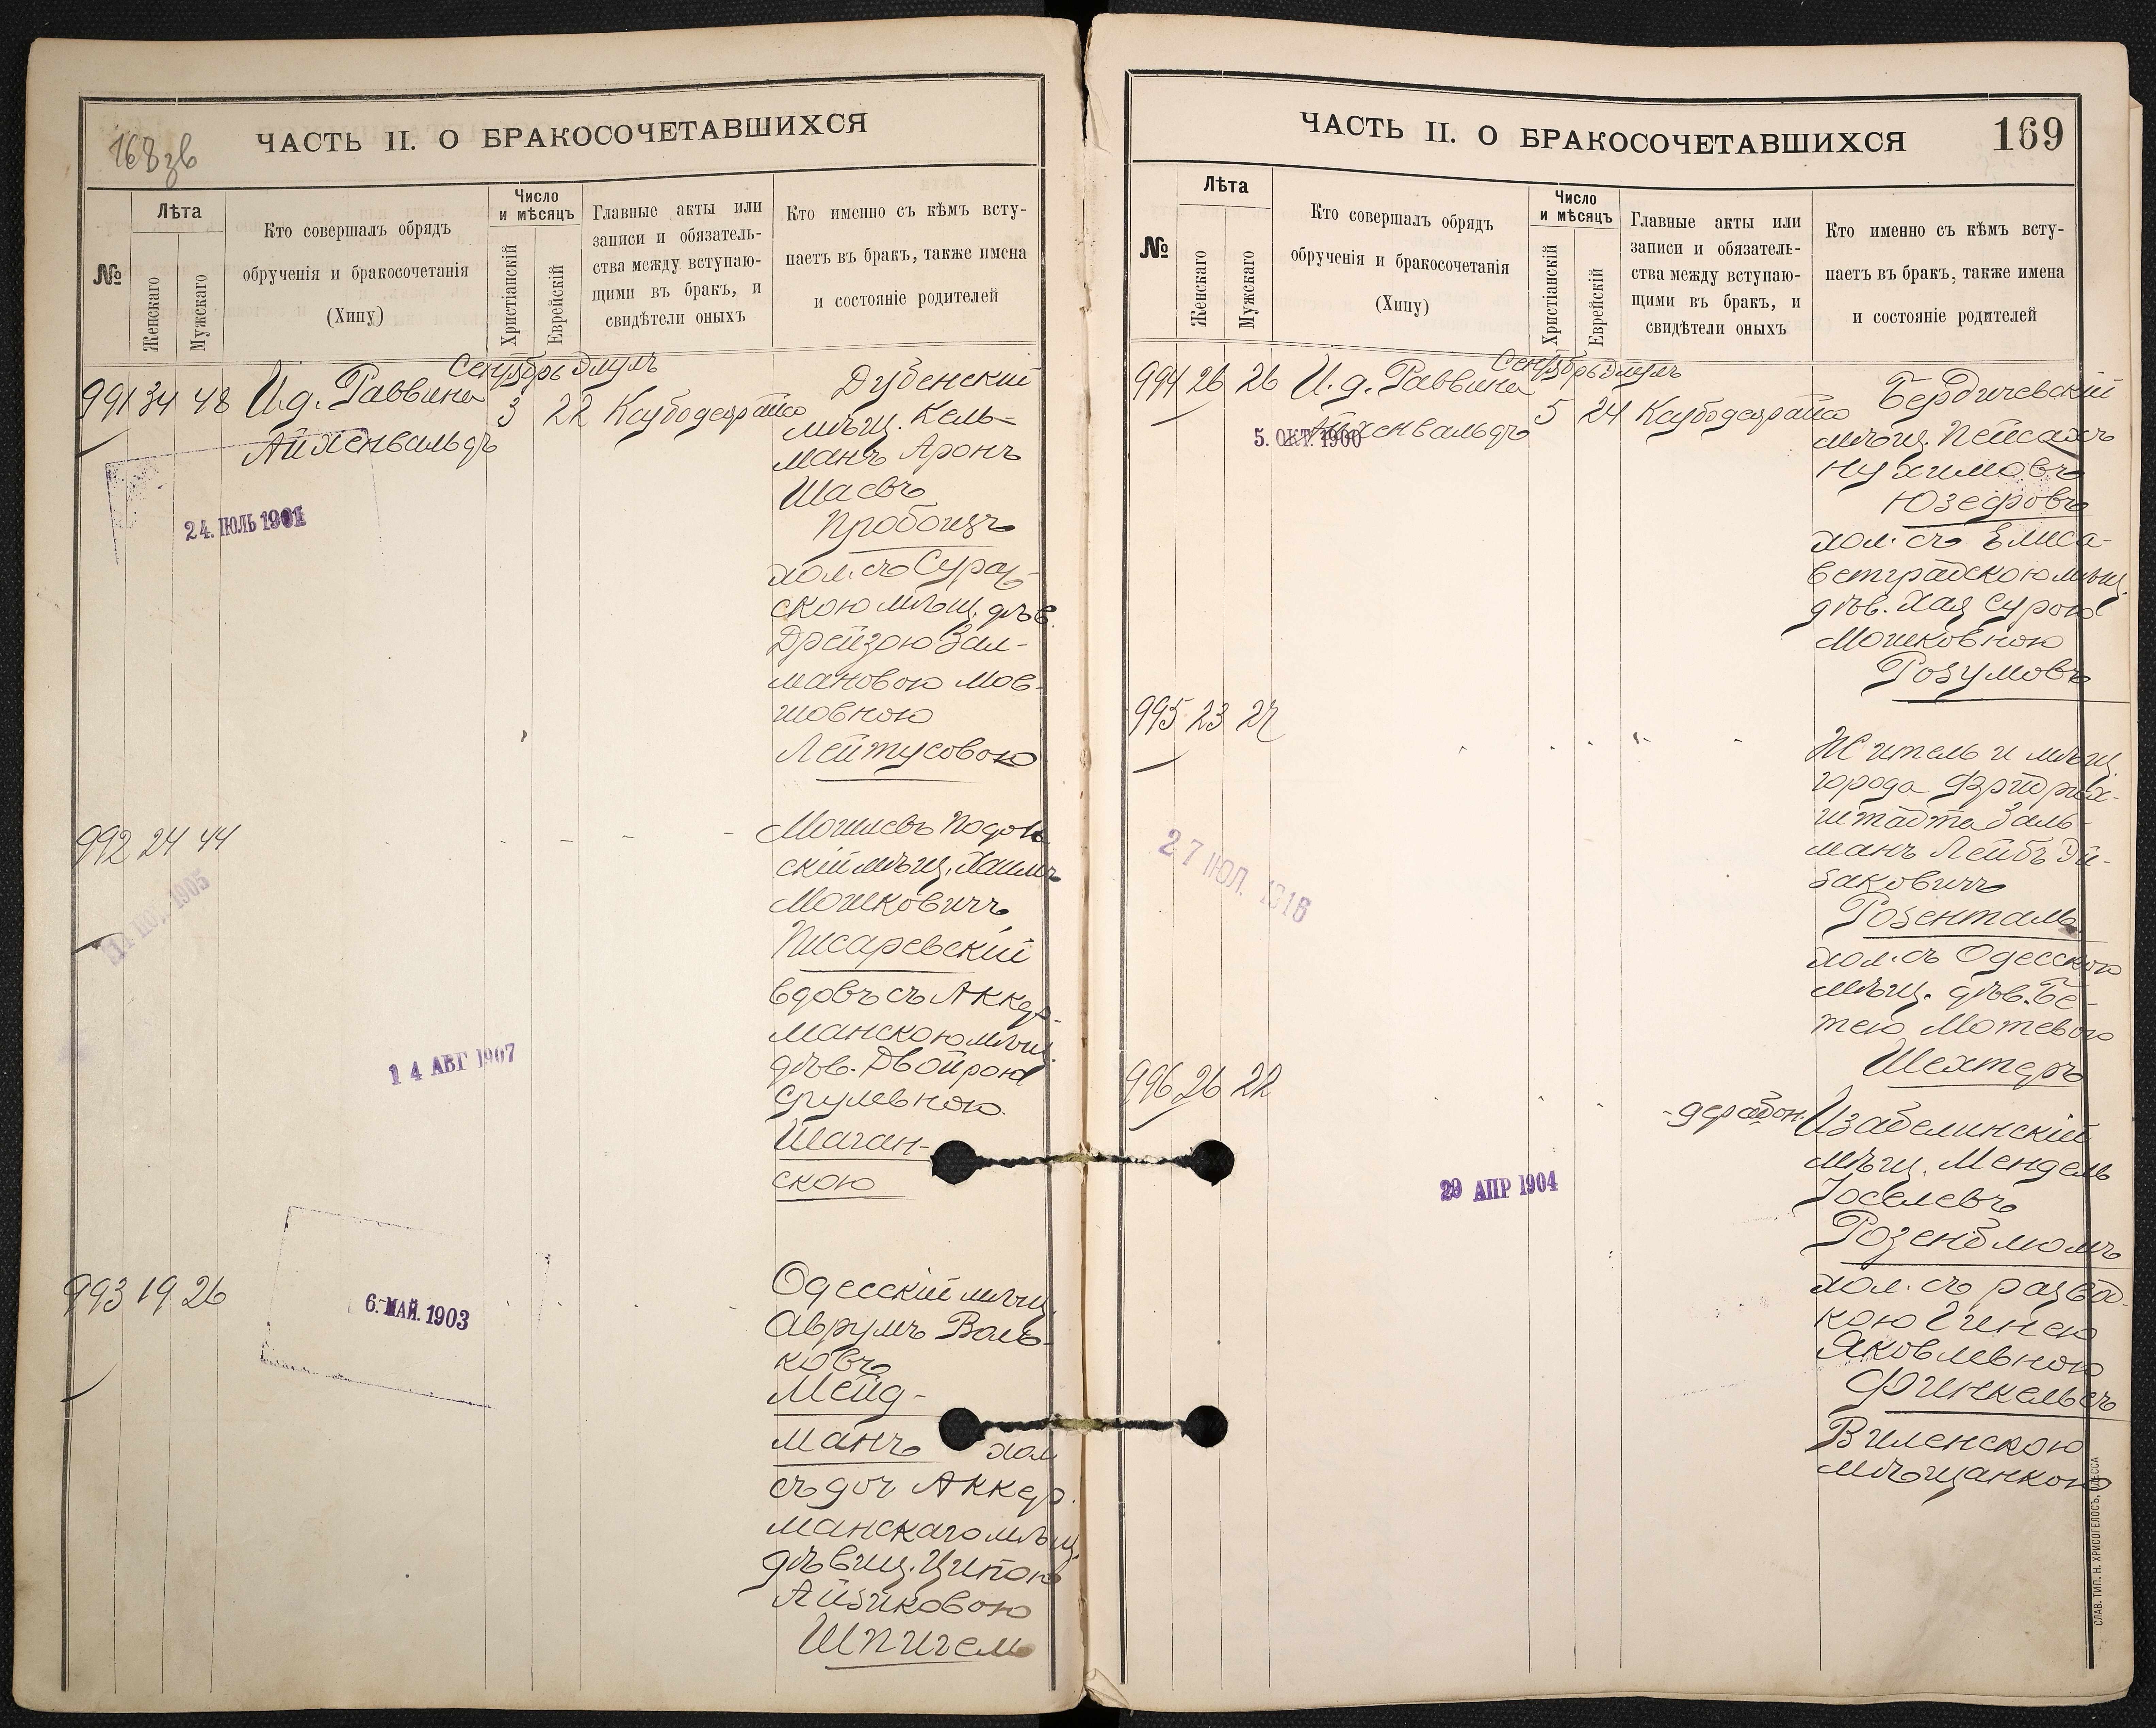 168 зв
ЧАСТЬ II. О БРАКОСОЧЕТАВШИХСЯ
№
Лѣта
Женскаго
Мужскаго
Кто совершалъ обрядъ
обрученія и бракосочетанія
(Хипу)
Число
и мѣсяцъ
Христіанскій
Еврейскій
Главные акты или
записи и обязатель-
ства между вступаю-
щими въ бракъ, и
свидѣтели оныхъ
Кто именно съ кѣмъ всту-
паетъ въ бракъ, также имена
и состояніе родителей
Сентябрь Элулъ
991 34 48 И.д. Раввина 3 22
Айхенвальдъ
24. ІЮЛЬ 1901
Дубенскій
мѣщ. Кель-
манъ Аронъ
Шаевъ
Пробоищъ
хол. съ Сураж-
скою мѣщ. дѣв.
Дрейзою Зал-
мановою Мов-
шовною
Лейтусовою
992 24 44
1905
14 АВГ 1907
Могилевъ Подоль-
скій мѣщ. Хаимъ
Мошковичъ
Писаревскій
вдовъ съ Аккер-
манскою мѣщ.
дѣв. Двойрою
Срулевною
Шаган-
скою
993 19 26
6. МАЙ. 1903
Одесскій мѣщ.
Аврумъ Воль-
ковъ
Мейд-
манъ хол
съ доч. Аккер.
манскаго мѣщ.
дѣвиц. Ципою
Айзиковою
Шпигель
ЧАСТЬ II. О БРАКОСОЧЕТАВШИХСЯ
169
№
Лѣта
Женскаго
Мужскаго
Кто совершалъ обрядъ
обрученія и бракосочетанія
(Хипу)
Число
и мѣсяцъ
Христіанскій
Еврейскій
Главные акты или
записи и обязатель-
ства между вступаю-
щими въ бракъ, и
свидѣтели оныхъ
Кто именно съ кѣмъ всту-
паетъ въ бракъ, также имена
и состояніе родителей
Сентябрь Элулъ
994 26 26 И.д. Раввина 5 24
Айхенвальдъ
5. ОКТ. 1900
Бердичевскій
мѣщ. Пейсахъ
Нухимовъ
Юзефовъ
хол. съ Елиса-
ветградскою мѣщ.
дѣв. Хая Сурою
Мошковною
Розумовъ
995 23 27
27 ІЮЛ. 1916
Житель и мѣщ.
города Фридрих-
штадта Заль-
манъ Лейбъ Эй-
заковичъ
Розенталь
хол. съ Одесскою
мѣщ. дѣв. Бе-
тею Мотевою
Шехтеръ
996 26 22
29 АПР 1904
Изабелинскій
мѣщ. Мендель
Іоселевъ
Розенблюмъ
хол. съ развод-
кою Гинею
Яковлевною
Финкельсъ
Виленскою
мѣщанкою
СЛАВ. ТИП. Н. ХРИСОГЕЛОСЪ, ОДЕССА